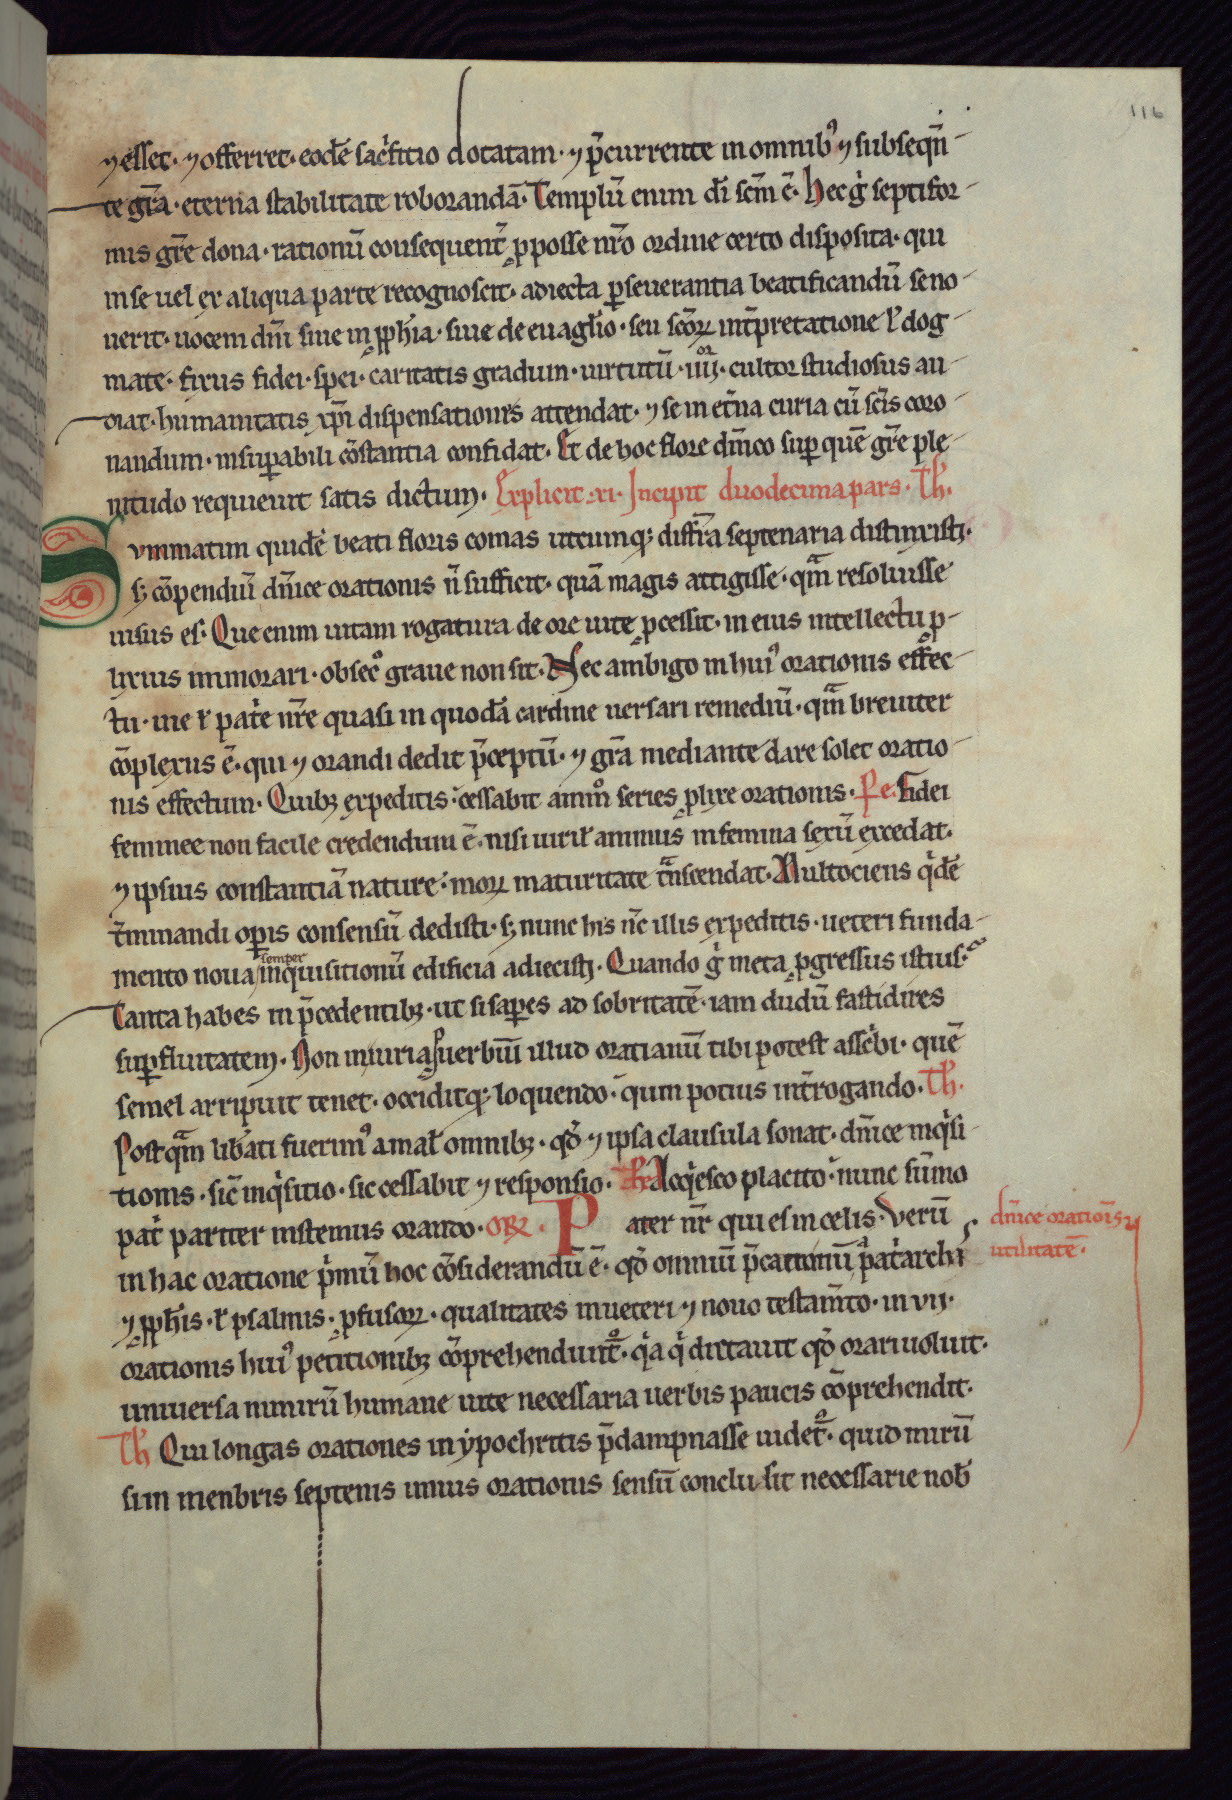 116
⁊ esset· ⁊ offerret· eodē sac̓ficio dotatam· ⁊ p̄currente in omnibꝰ ⁊ subseqn̄
te gr̄a· eterna stabilitate roborandā· Templū enim dī scm̄ ē· Hec g̓ septifor
mis gr̄e dona· rationū consequent᷑ ꝓ posse nr̄o ordine certo disposita· qui
in se uel ex aliqua parte recognoscit· adiecta ꝑseuerantia beatificandū se no
uerit· uocem dn̄i siue in ꝓph̓ia· siue de euag̓lio· seu scōꝝ int̓pretatione ł dog
mate· fixus fidei· spei· caritatis gradum· uirtutū ·iiii· cultor studiosus au
diat· humanitatis xp̄i dispensationes attendat· ⁊ se in et̓na curia cū scīs coro
nandum· insuꝑabili cōstantia confidat· Et de hoc flore dn̄ico suꝑ quē gr̄e ple
nitudo requieuit satis dictum· Explicit ·xi· Incipit duodecima pars· Th̓·
Summatim quidē beati floris comas utcumqꝫ diffr̄ia septenaria distinxisti·
sꝫ cōpendiū dn̄ice orationis n̄ sufficit· quā magis attigisse· qm̄ resoluisse
uisus es· Que enim uitam rogatura de ore uite ꝓcessit· in eius intellectu ꝓ
lixius immorari· obsecͦ graue non sit· Nec ambigo in huiꝰ orationis effec
tu· me ł pat̓e nr̄e quasi in quodā cardine uersari remediū· qm̄ breuiter
cōplexus ē· qui ⁊ orandi dedit p̄ceptū· ⁊ gr̄a mediante dare solet oratio
nis effectum· Quibꝫ expeditis· cessabit animͦ series ꝓlixe orationis· Pe· Fidei
feminee non facile credendum ē· nisi uiril̓ animus in femina sexū excedat·
⁊ ipsius constantiā nature· moꝝ maturitate t̓nscendat· Multociens q̓dē
t̓minandi oꝑis consensū dedisti· sꝫ nunc his nc̄ illis expeditis· ueteri funda
mento noua semper inquisitionū edificia adiecisti· Quando g̓ meta ꝓgressus istius·
Tanta habes in p̄cedentibꝫ· ut si saꝑes ad sobrietatē· iam dudū fastidires
suꝑfluitatem· Non iniuria ꝓuerbiū illud oratianū tibi potest assc̓bi· quē
semel arripuit tenet· occiditqꝫ loquendo· qum potius int̓rogando· Th̓·
Postqm̄ lib̓ati fuerimꝰ a mal̓ omnibꝫ· qđ ⁊ ipsa clausula sonat· dn̄ice inq̓si
tionis· sic̄ inq̓sitio· sic cessabit ⁊ responsio· Acq̓esco placito· nunc sūmo
pat̓ pariter instemus orando· Oꝝ· Pater nr̄ qui es in celis· Verū
dn̄ice orationis
utilitatē·
in hac oratione p̓mū hoc cōsiderandū ē· qđ omniū p̄cationū pat̓archis
⁊ ꝓph̓is· ł psalmis· ꝓfusoꝝ· qualitates in ueteri ⁊ nouo testam̄to· in vii·
orationis huiꝰ petitionibꝫ cōprehendunt᷑· q̓a q̓ dictauit qđ orari uoluit·
uniuersa nimirū humane uite necessaria uerbis paucis cōprehendit·
Th̓ Qui longas orationes in ypochritis p̄dampnasse uidet᷑· quid mirū
si in menbris septenis unius orationis sensū conclusit necessarie nob̄